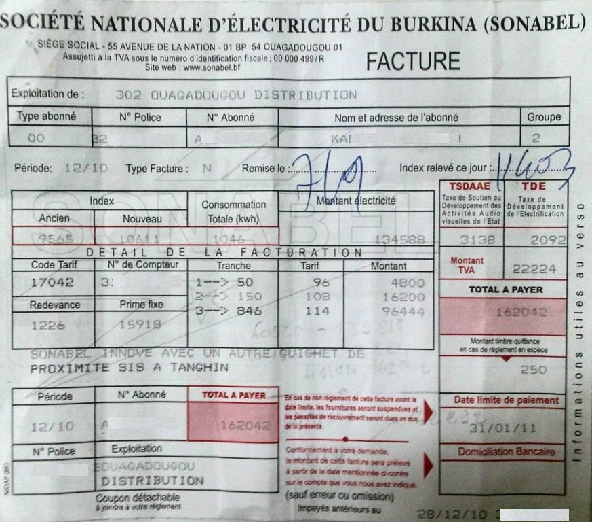 SOCIÉTÉ NATIONALE D'ÉLECTRICITÉ DU BURKINA (SONABEL)
SIÈGE SOCIAL - 55 AVENUE DE LA NATION - 01 BP 54 OUAGADOUGOU 01
Assujetti à la TVA sous le numéro d'identification fiscale : 00 000 499/R
Site web : www.sonabel.bf
FACTURE
Exploitation de : 302 OUAGADOUGOU DISTRIBUTION
Type abonné N° Police N° Abonné Nom et adresse de l'abonné Groupe
00 82 A KAI I 2
Période: 12/10 Type Facture : N Remise le : Index relevé ce jour :
Index Consommation Totale (kwh) Montant électricité
Ancien Nouveau
9565 10611 1046 134588
TSDAAE TDE
Taxe de Soutien au Développement des Activités Audio visuelles de l'Etat
Taxe de Développement de l'Electrification
3138 2092
DETAIL DE LA FACTURATION
Code Tarif N° de Compteur Tranche Tarif Montant
17042 3: 1--> 50 96 4800
2--> 150 108 16200
Redevance Prime fixe 3--> 846 114 96444
1226 15918
Montant TVA 22224
TOTAL A PAYER
162042
Montant timbre quittance en cas de règlement en espèce
250
SONABEL INNOVE AVEC UN AUTRE GUICHET DE
PROXIMITE SIS A TANGHIN
Période N° Abonné TOTAL A PAYER
12/10 A 162042
N° Police Exploitation
OUAGADOUGOU
DISTRIBUTION
Coupon détachable
à joindre à votre règlement
En cas de non règlement de cette facture avant la
date limite, les fournitures seront suspendues et
les pénalités de recouvrement seront dues en sus
de la présente
Conformément à votre demande,
le montant de cette facture sera prélevé
à partir de la date mentionnée ci-dessus
sur le compte que vous nous avez indiqué.
(sauf erreur ou omission)
Impayés antérieurs au 28/12/10
Date limite de paiement
31/01/11
Domiciliation Bancaire
Informations utiles au verso